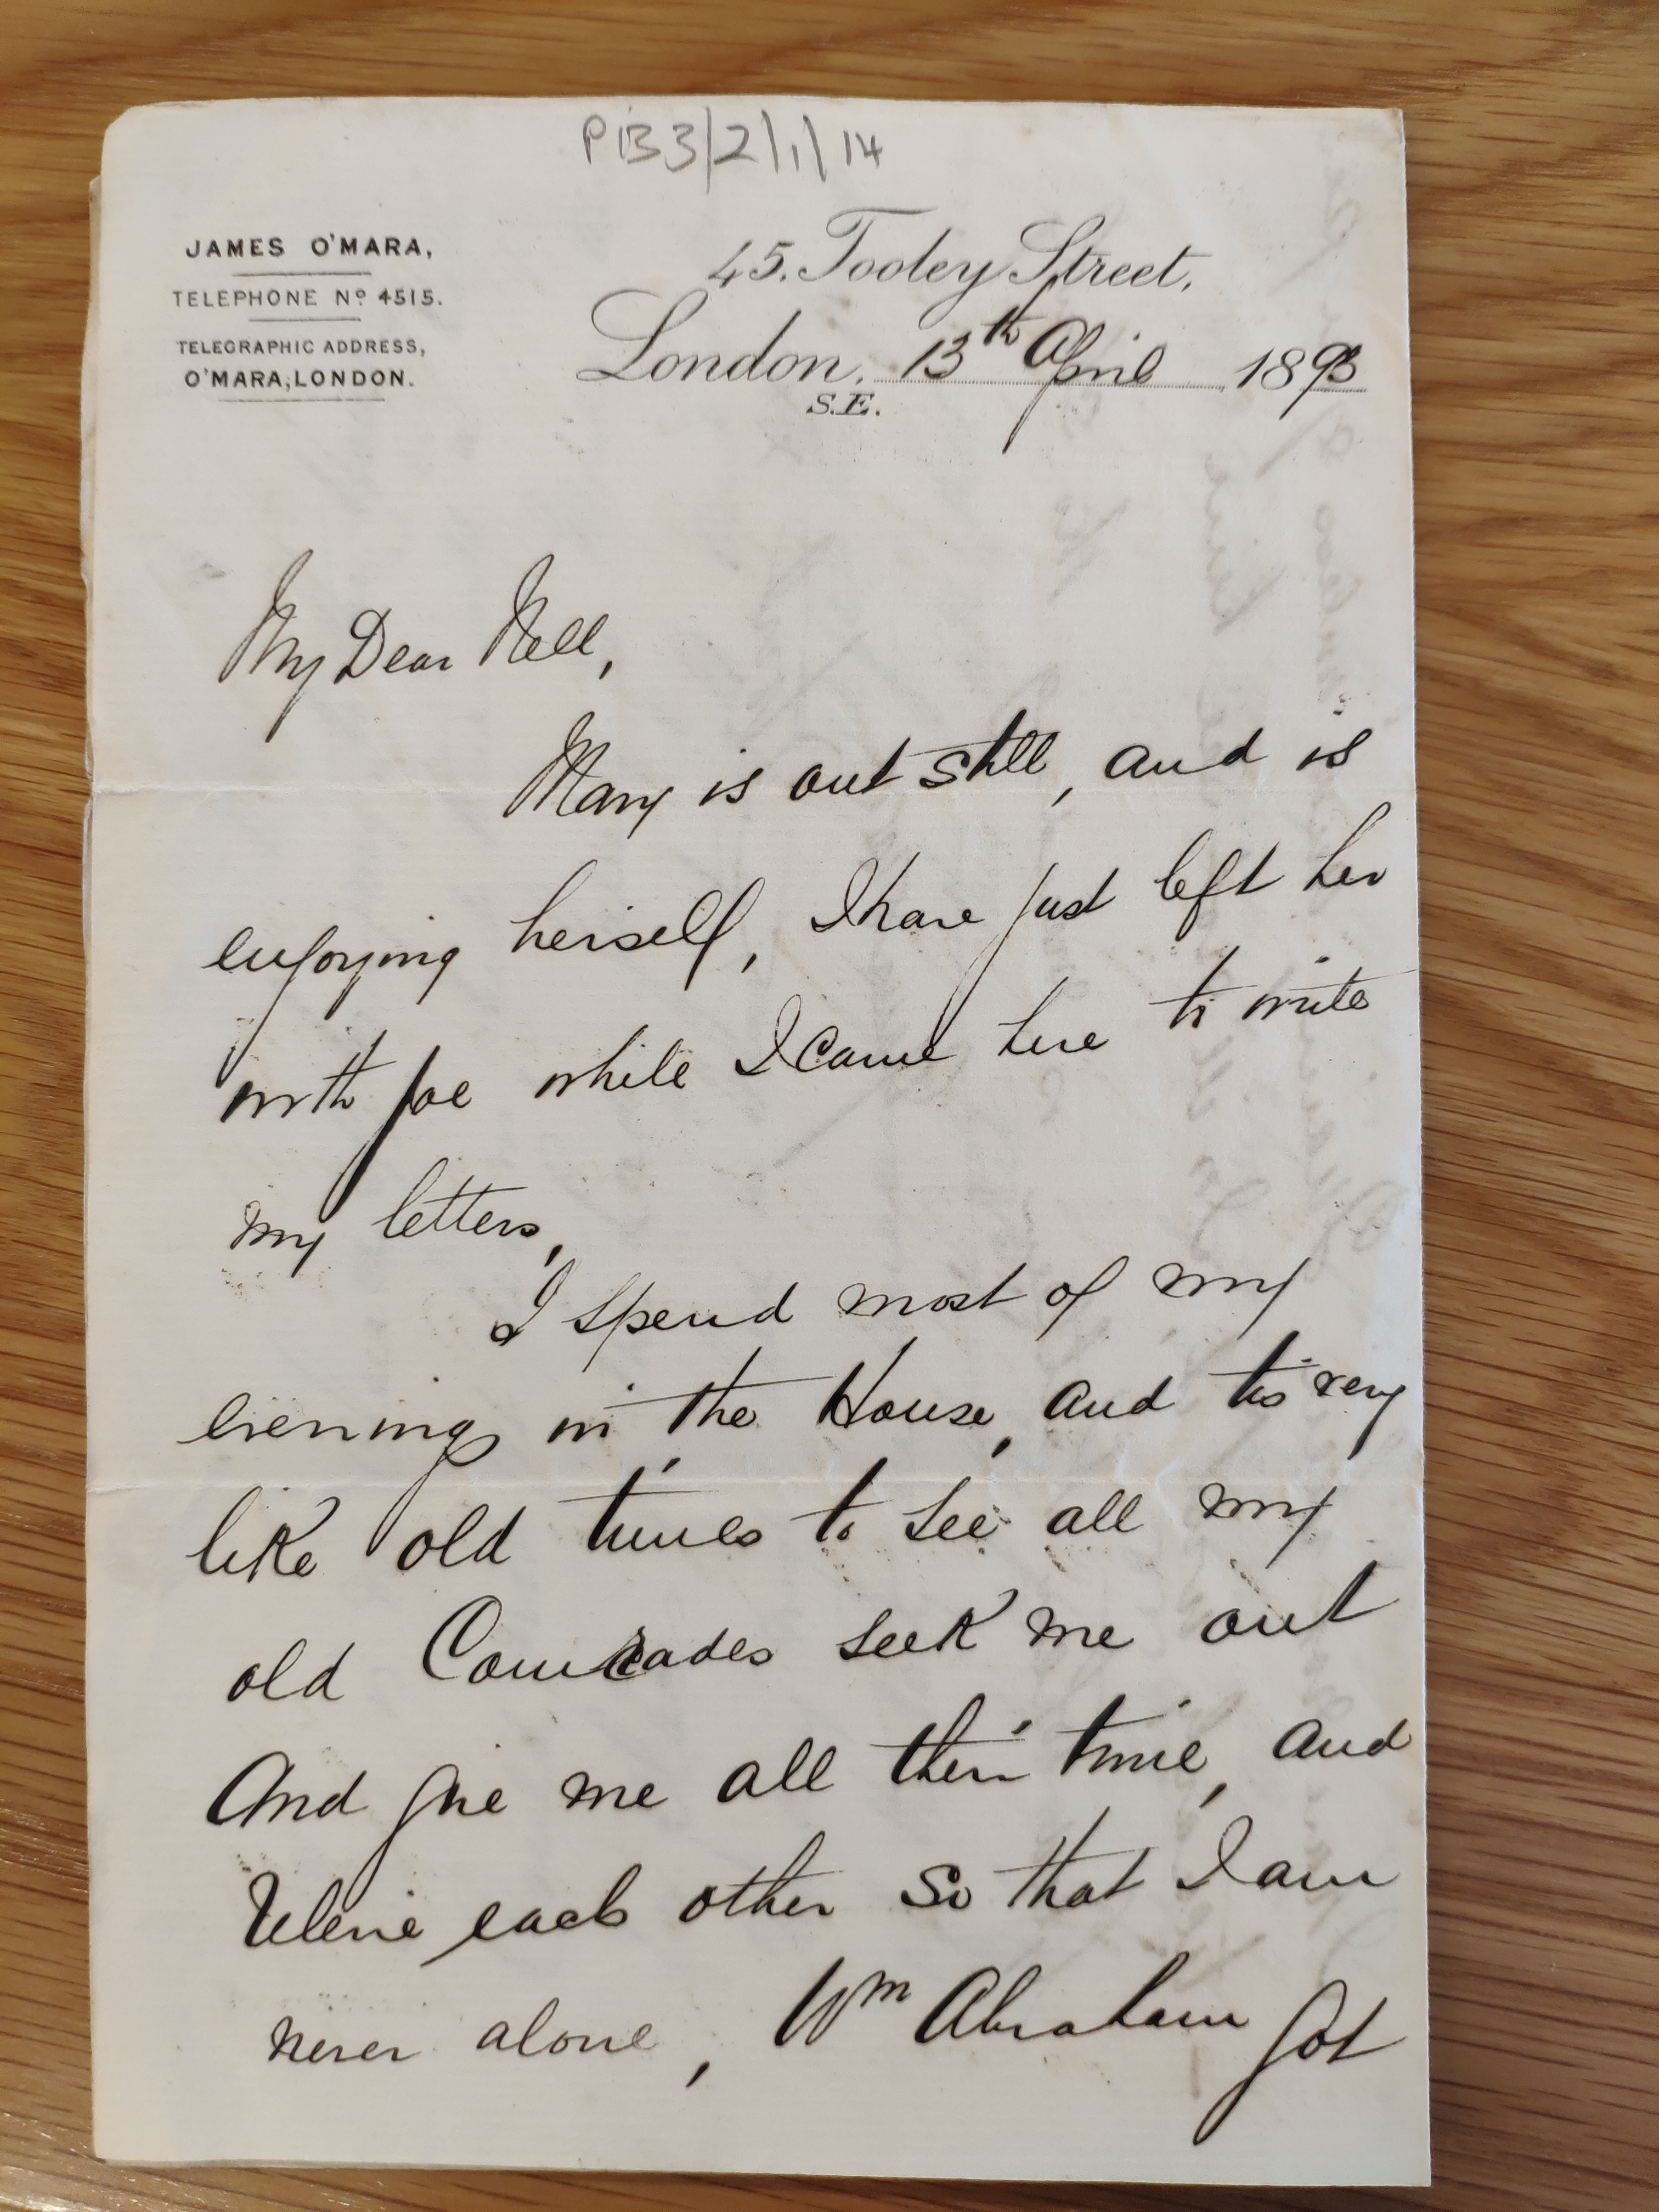 P133/2/1/14
JAMES O'MARA,
TELEPHONE Nº 4515.
TELEGRAPHIC ADDRESS,
O'MARA, LONDON.
45. Tooley Street,
London. 13th April 1893
S.E.
My Dear Nell,
Mary is out still, and is
enjoying herself, I have just left her
with Joe while I came here to write
my letters,
I spend most of my
evenings in the House, and tis very
like old times to see all my
old Comrades seek me out
And give me all their time, and
relieve each other so that I am
never alone, Wm Abraham got